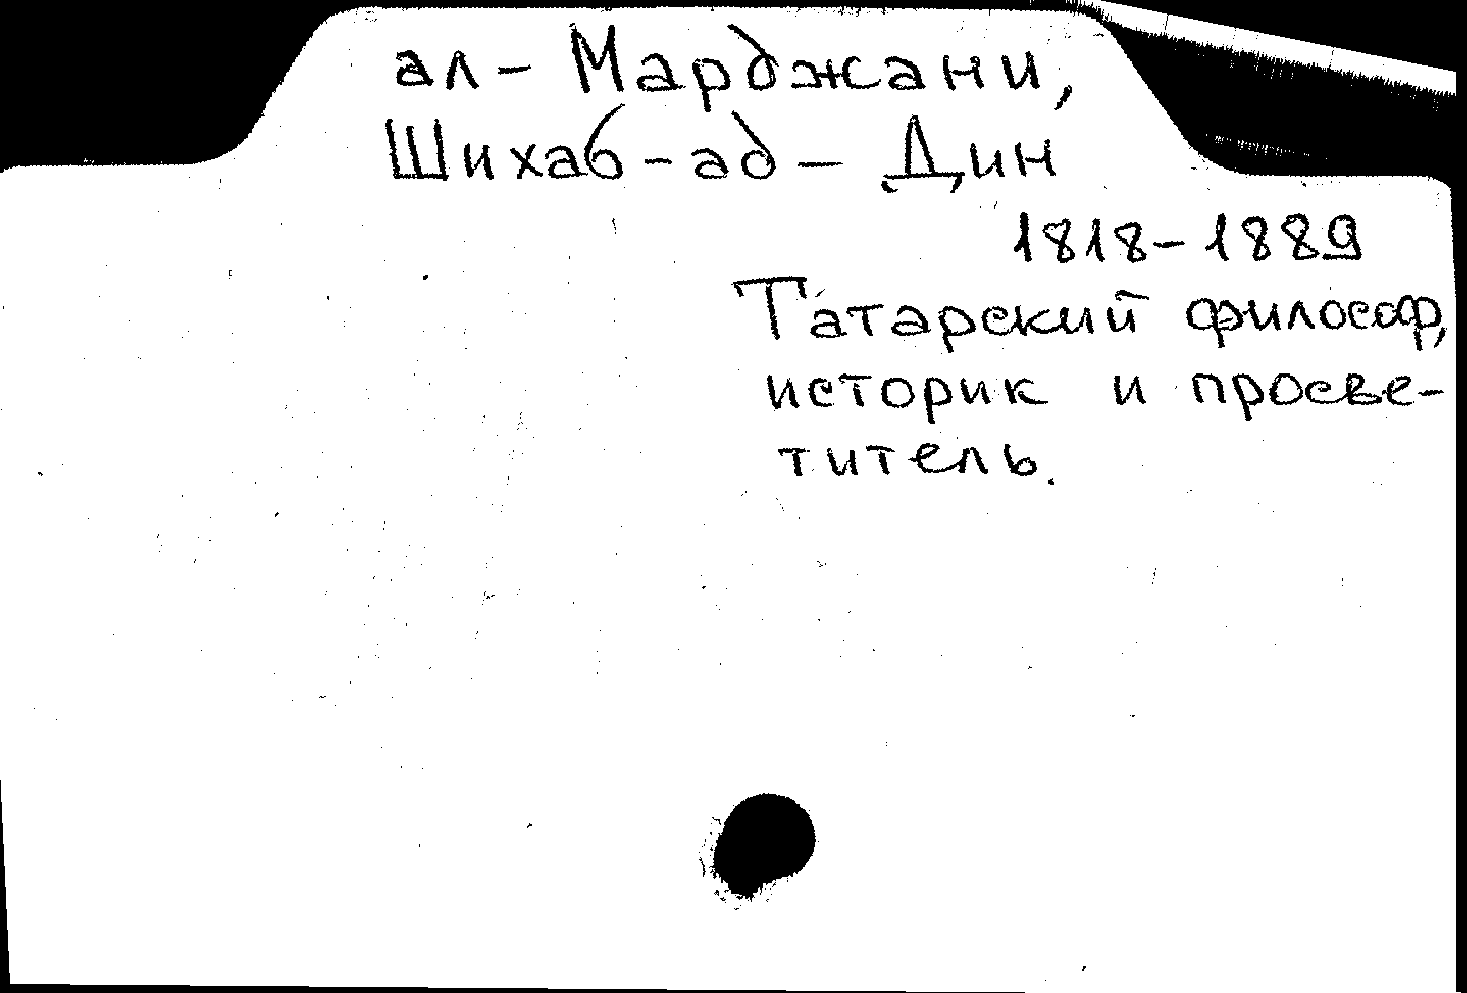 ал-Марджани,
Шихаб-ад-Дин
1818-1889
Татарский философ,
историк и просве-
титель.